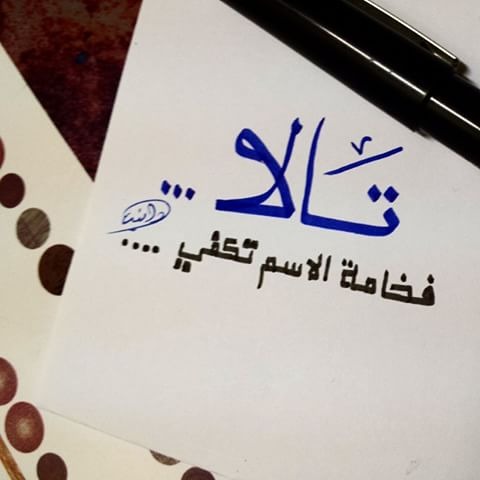 تالا...
فخامة الاسم تكفي ....